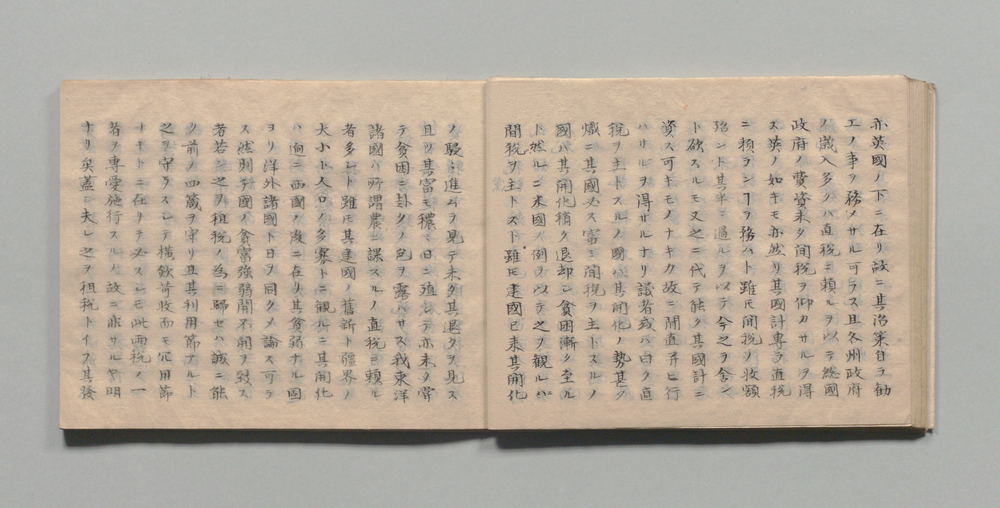 亦英國ノ下ニ在リ故ニ其治策自ラ勧
工ノ事ヲ務メサル可ラス且各州政府
ノ歳入多クハ直税ニ頼ルヲ以テ総國
政府ノ費資未タ間税ヲ仰カサルヲ得
ス英ノ如キモ亦然リ其國計専ラ直税
ニ頼ランヿヲ務ハト雖𪜈間税ノ收額
殆ント其半ニ過ルヲ以テ今之ヲ舎ン
ト欲スルモ又之ニ代テ能ク其國計ニ
資ス可トモノナキカ故ニ間直并ヒ行
ハサルヲ得サルナリ議者或ハ曰ク直
税ヲ主トスルノ國ハ其開化ノ勢甚タ
熾ニ其國必ス富ミ間税ヲ主トスルノ
國ハ其開化稍々退却シ貧困漸ク至ル
ト然ルニ米國ノ例ヲ以テ之ヲ観ルハ
間税ヲ主トスト雖𪜈建國已来其開化
ノ駸々進ムヲ見テ未タ其退クヲ見ス
且ツ其富モ穣々日ニ殖シテ亦未タ嘗
テ貧困ニ卦クノ色ヲ露ハサス我東洋
諸國ハ所謂農ニ課スルノ直税ニ頼ル
者多シト雖𪜈其建國ノ舊新ト疆界ノ
大小ト人口ノ多寡トニ観ルニ其開化
ハ逈ニ西國ノ後ニ在リ其貧弱ナル固
ヨリ洋外諸國ト日ヲ同クメ論ス可ラ
ス然則チ國ノ貧富強弱開不開ヲ致ス
者若シ之ヲ租税ノ為ニ歸セハ誠ニ能
ク前ノ四蔵ヲ守リ且其利用節ナルト
之ヲ守ラスシテ横斂苛收而モ冗用節
ナキトニ在リテ必スシモ此両税ノ一
者ヲ専愛施行スルノ故ニ非サルヤ明
ナリ矣蓋シ夫レ之ヲ租税トイフ其發